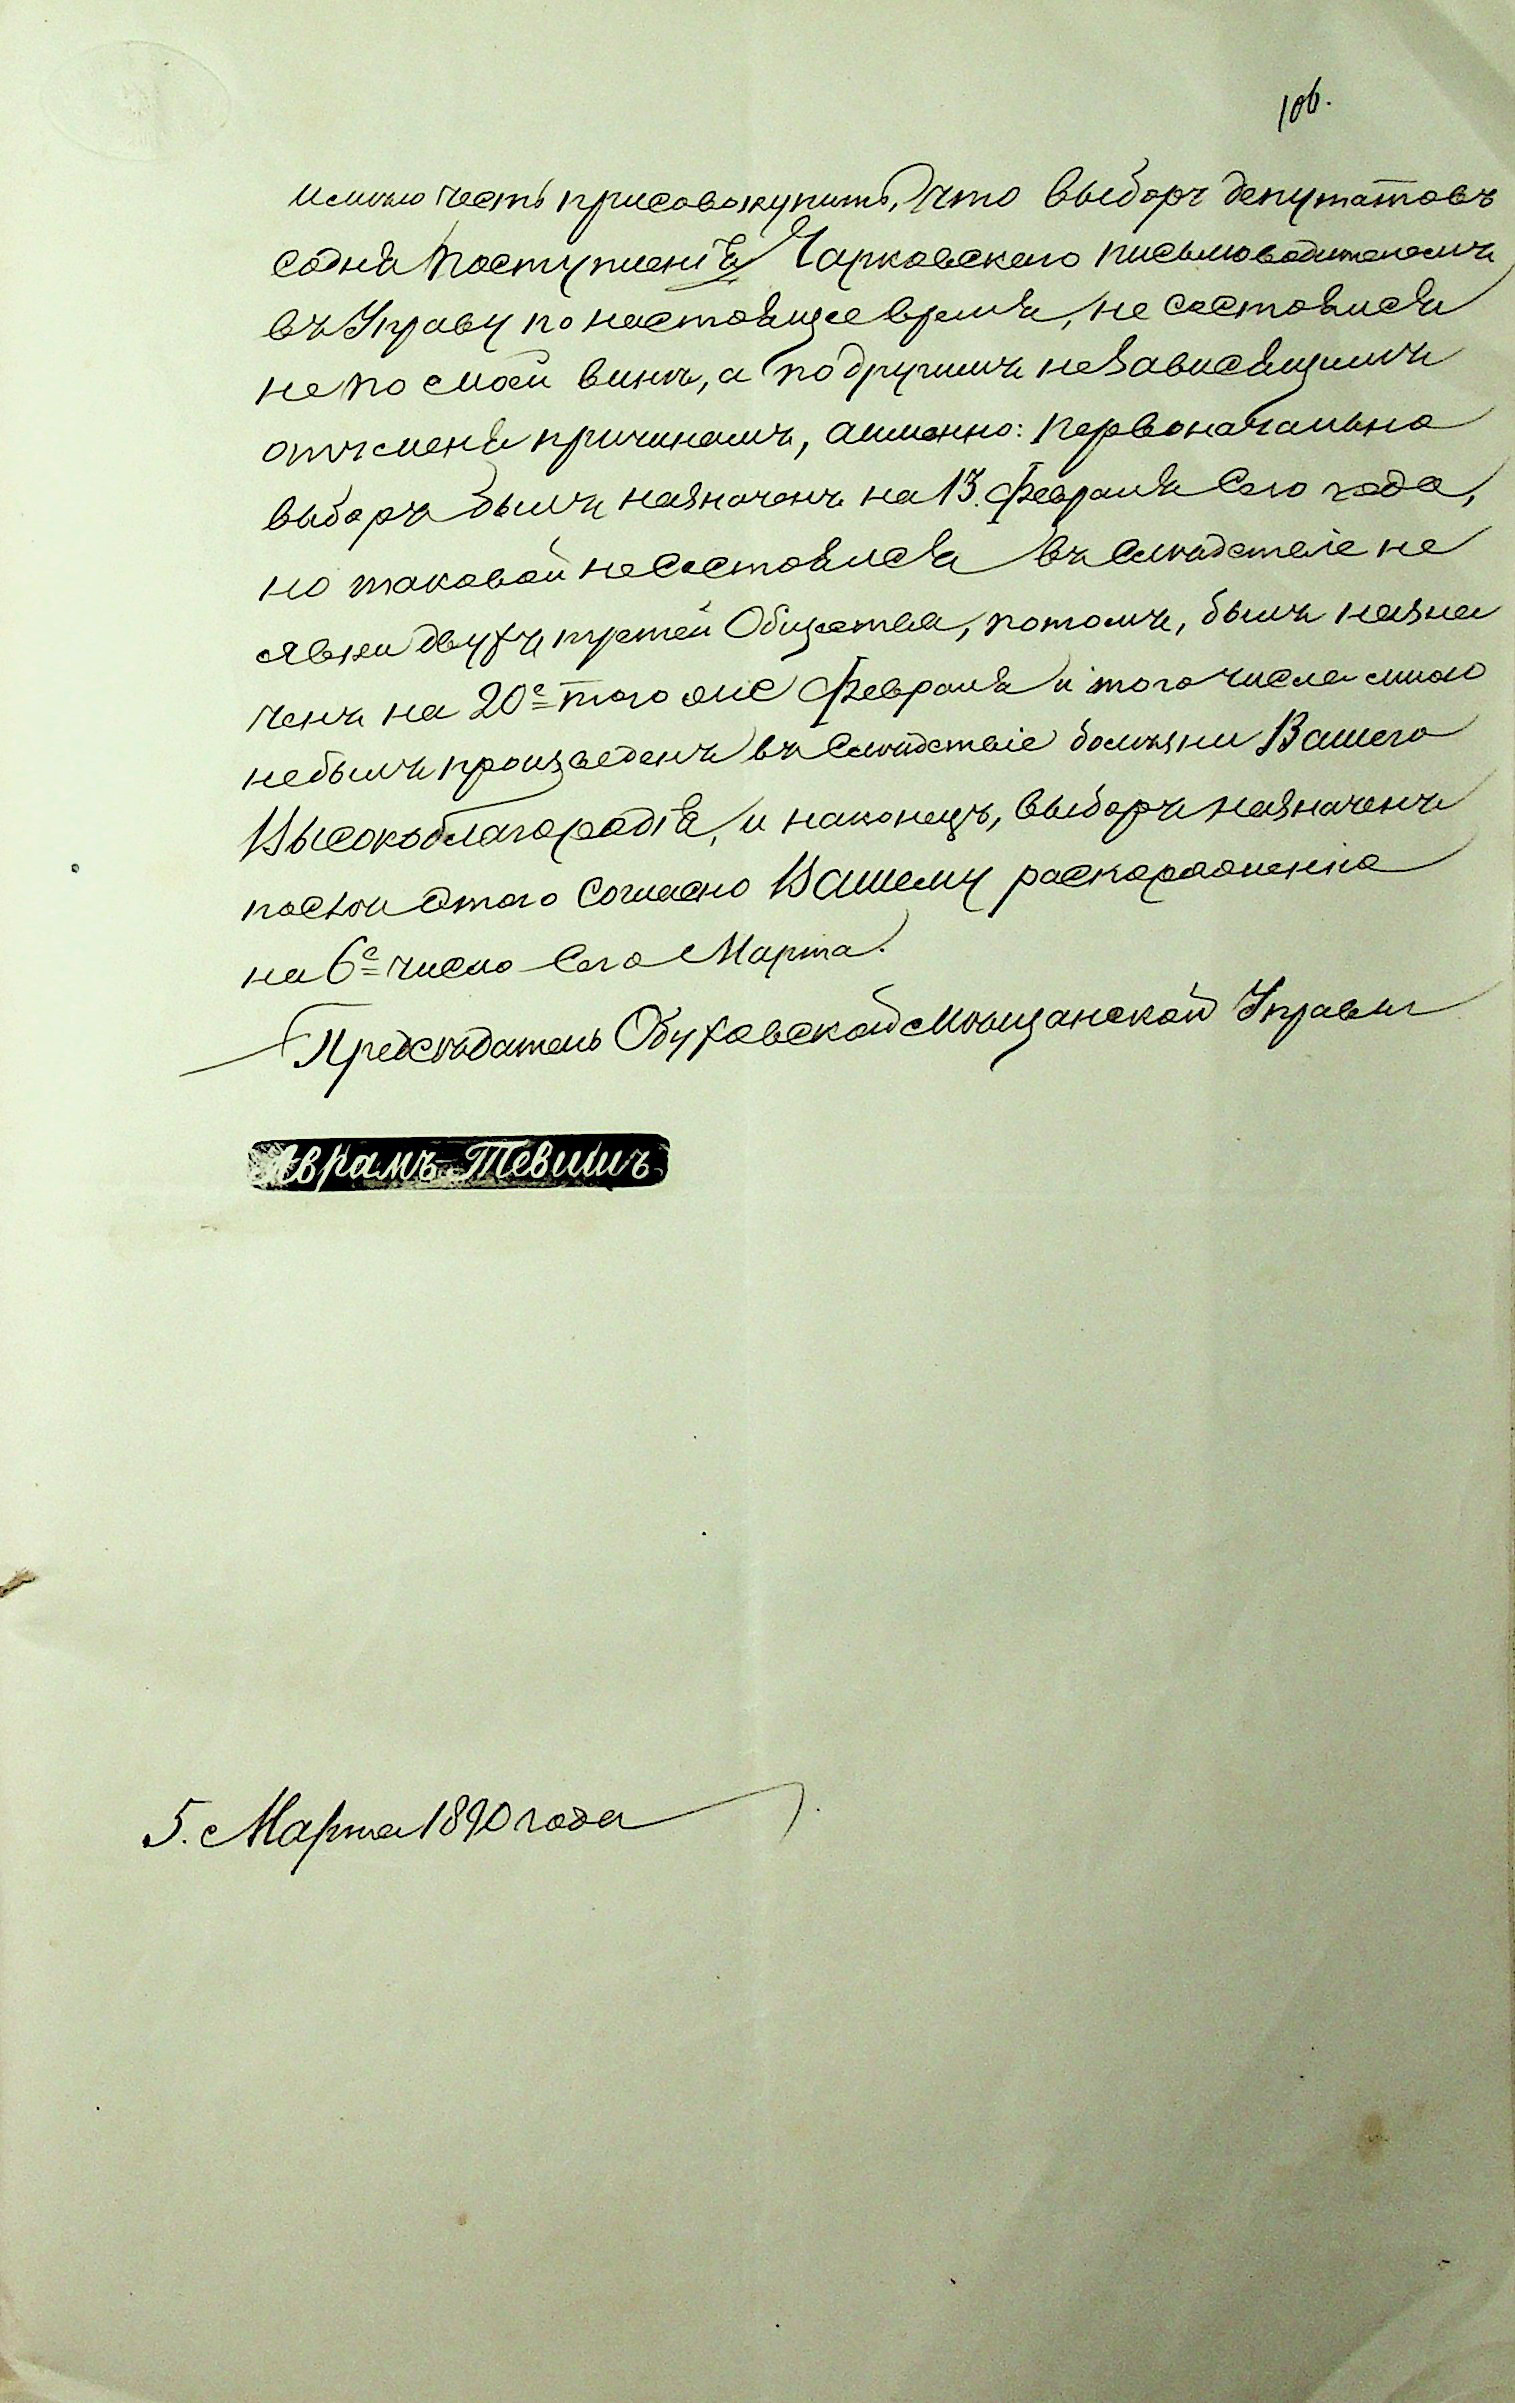 106.
имѣю честь присовокупить, что выборъ депутатовъ
содня поступленія Чарковскаго письмоводителемъ
въ Управу по настоящее время, не состоялся
не по моей винѣ, а по другимъ независящимъ
отъ меня причинамъ, аименно: первоначально
выборъ былъ назначенъ на 13. Февраля сего года,
но таковой несостоялся въ слѣдствіе не
явки двухъ третей Общества, потомъ, былъ назна
ченъ на 20е того же Февраля и того числа
небылъ произведенъ въ слѣдствіе болѣзни Вашего
Высокоблагородія, и наконецъ, выборъ назначенъ
послѣ этого согласно Вашему распоряженію
на 6е число сего Марта.
Предсѣдатель Обуховской Мѣщанской Управы
Аврамъ Тевишъ
5. Марта 1890 года